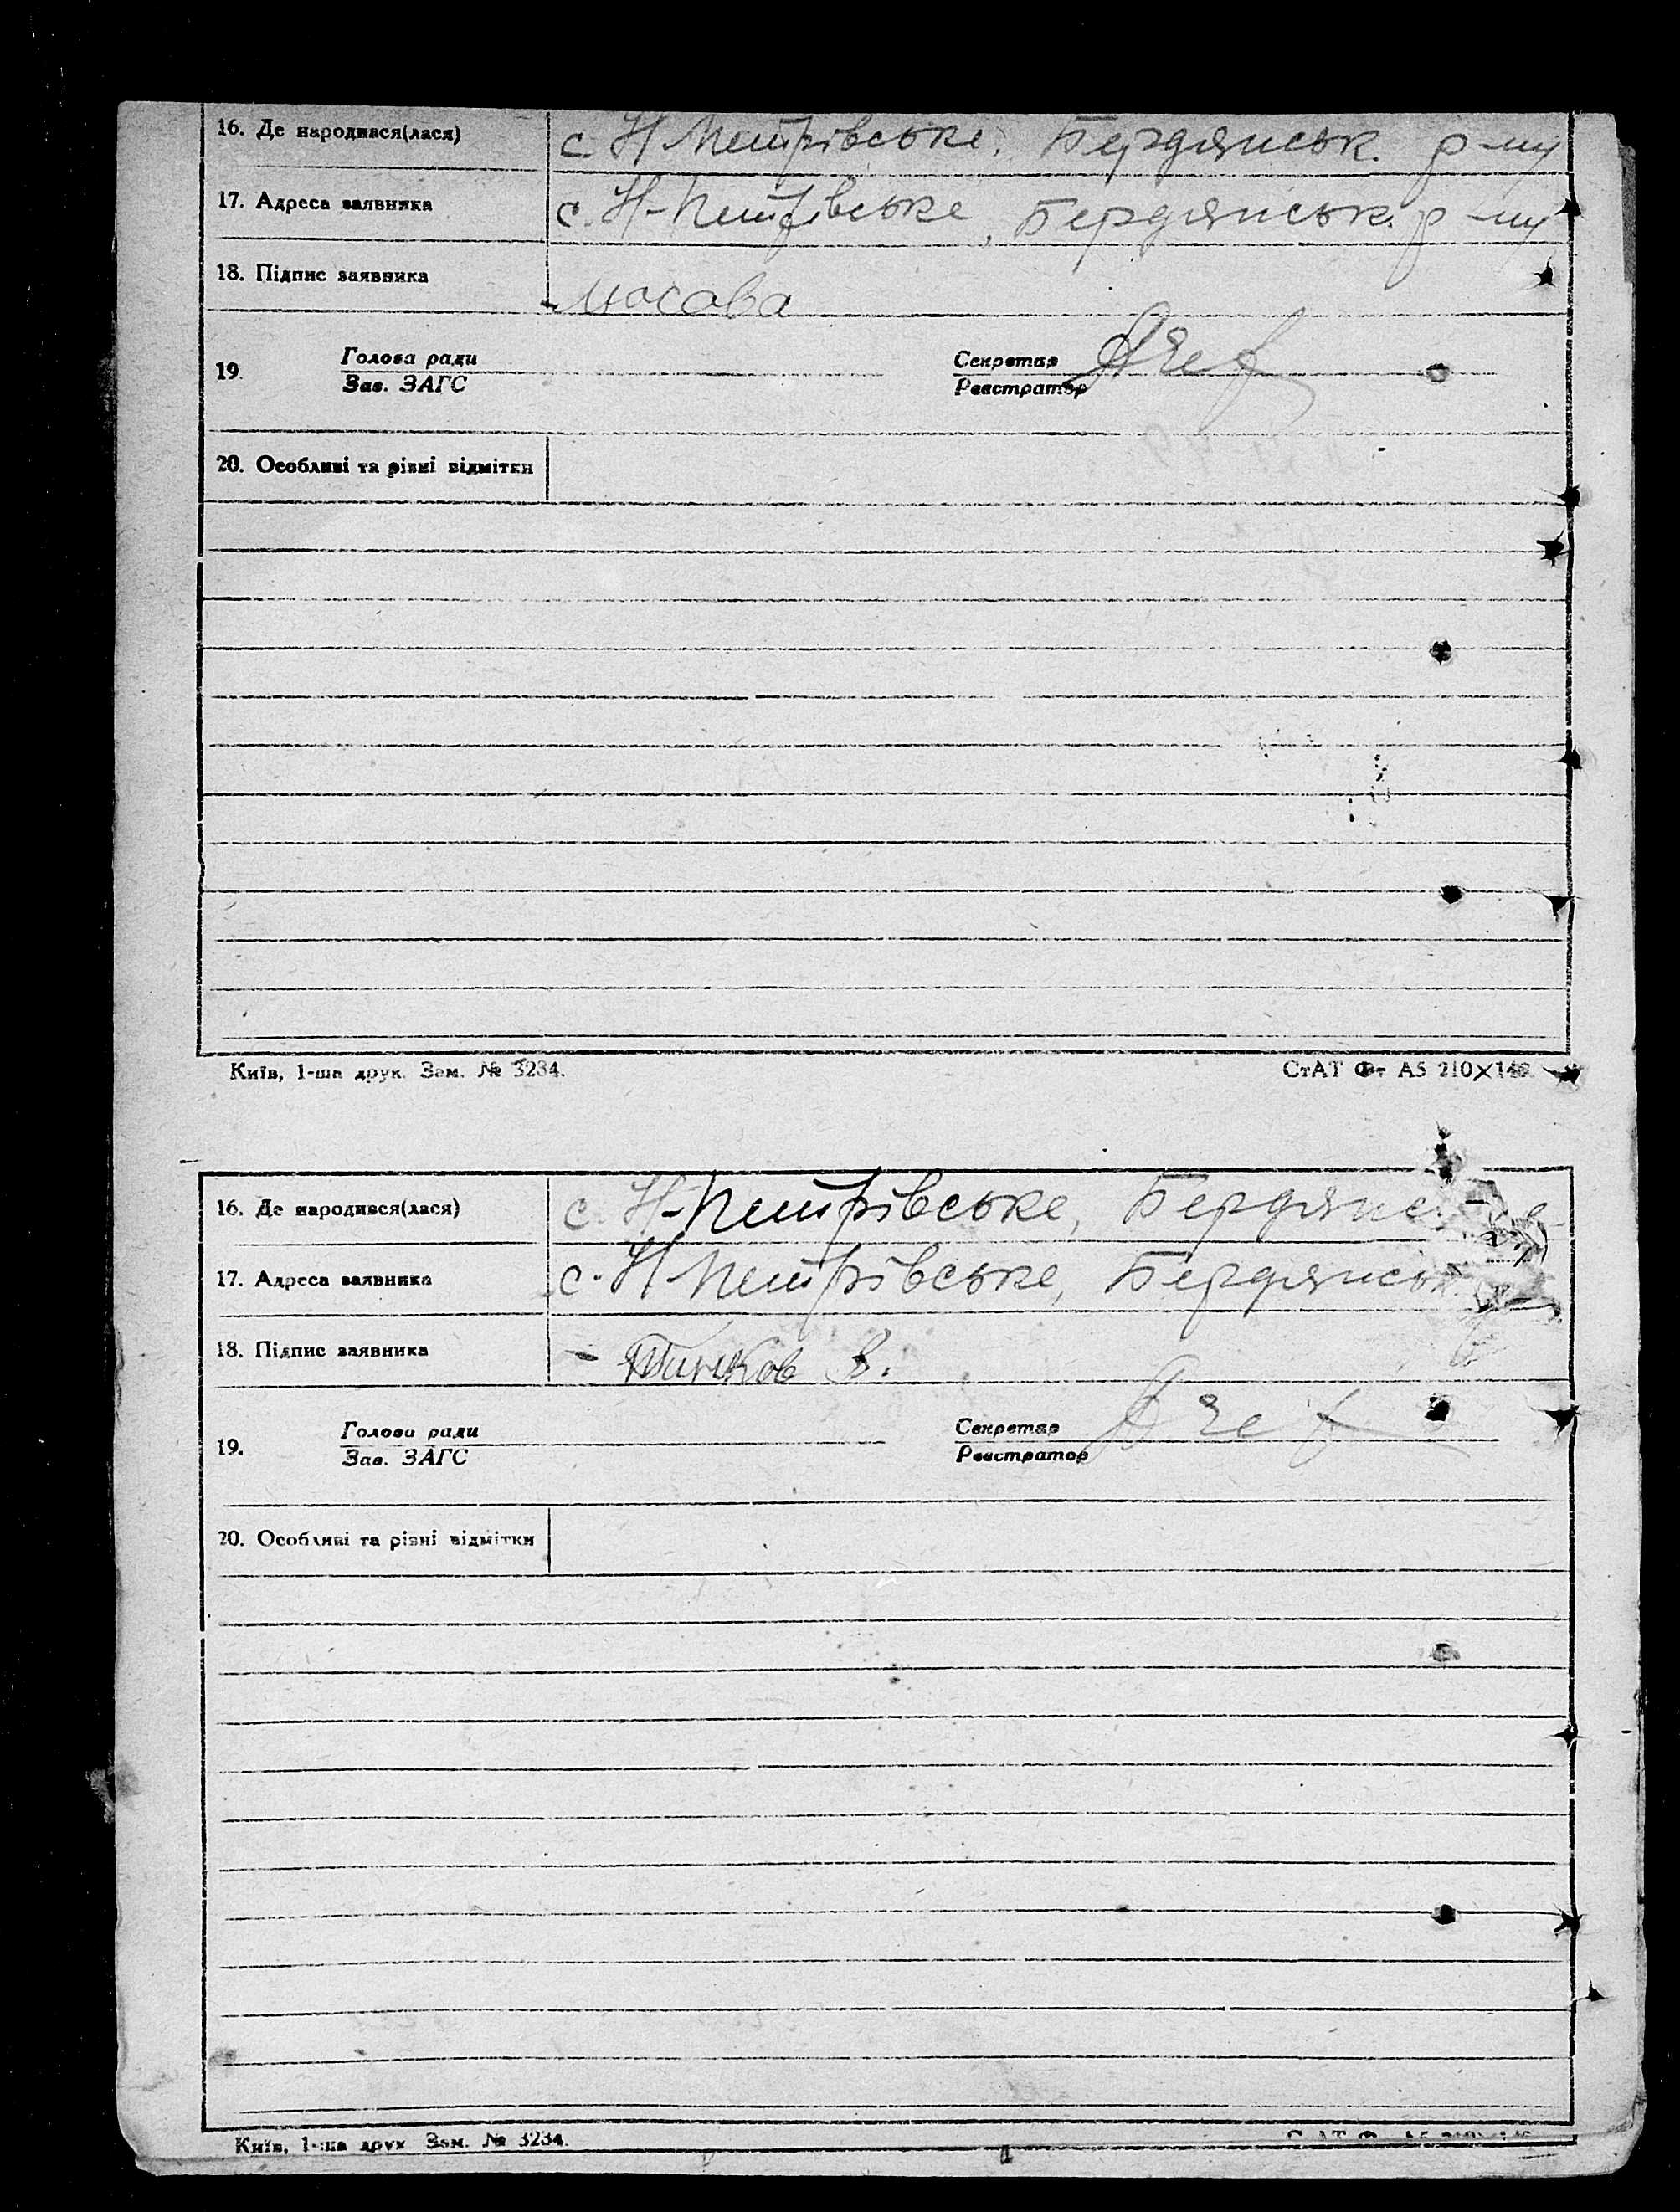 16. Де народився(лася) с. Н Петрівське, Бердянськ. р-ну
17. Адреса заявника с. Н-Петрівське, Бердянськ. р-ну
18. Підпис заявника Носова
19. Голова ради Секретар
Зав. ЗАГС Реєстратор
20. Особливі та різні відмітки
Київ, 1-ша друк. Зам. № 3234. СтАТ Фт А5 210×148.
16. Де народився(лася) с. Н-Петрівське, Бердянс
17. Адреса заявника с. Н Петрівське, Бердянськ.
18. Підпис заявника В.
19. Голова ради Секретар
Зав. ЗАГС Реєстратор
20. Особливі та різні відмітки
Київ, 1-ша друк. Зам. № 3234.